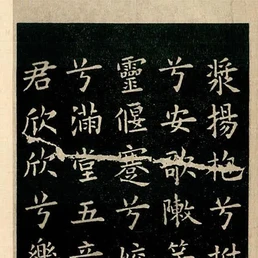 漿揚枹兮拊
兮安歌敶竽
靈偃蹇兮姣
兮滿堂五音
君欣欣兮樂